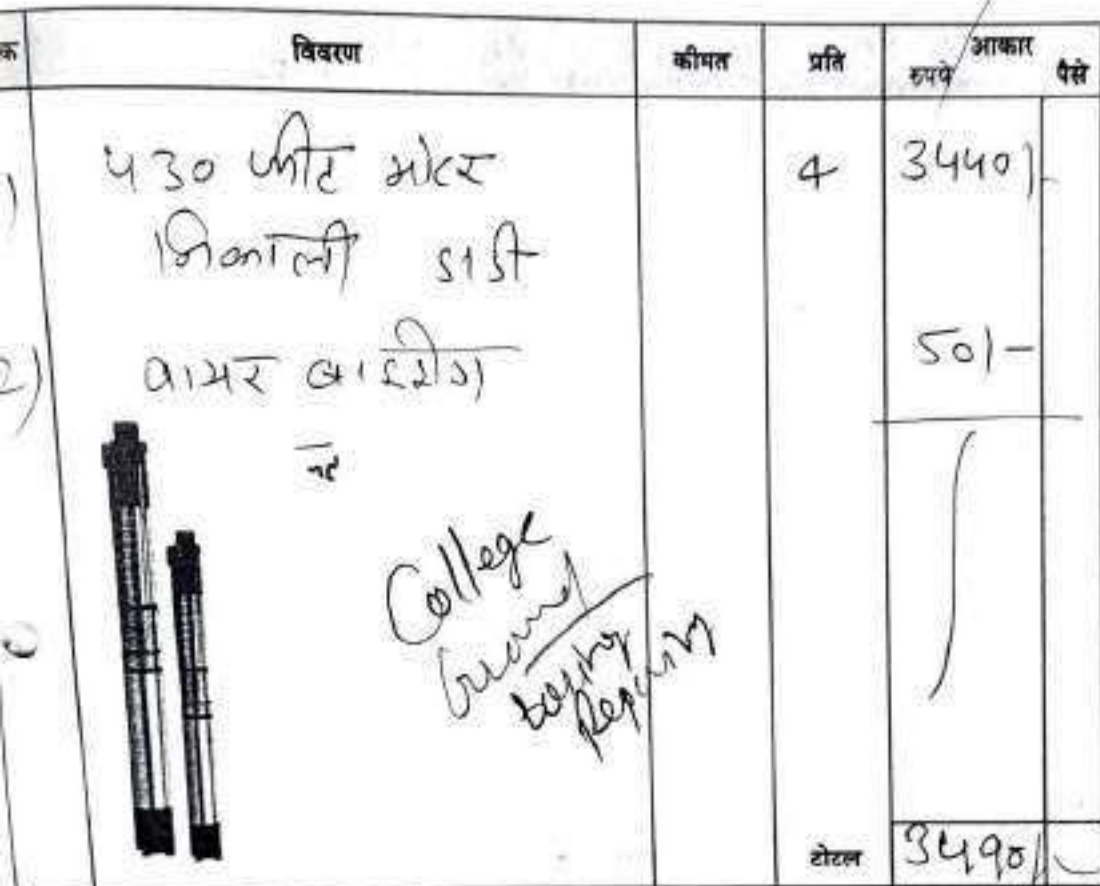 क विवरण कीमत प्रति आकार
रुपये पैसे
1) ५30 फीट मोटर 4 3440/-
निकाली डाडी
2) वायर बाईडींग 50/-
College
Ground
boring
Repairing
टोटल 3490/